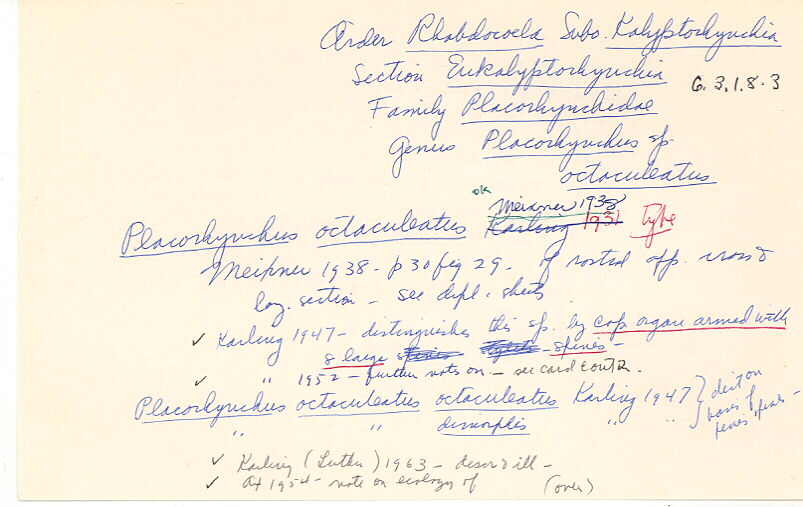 Order Rhabdocoela Subo. Kalyptorhynchia
Section Eukalyptorhynchia
6.3.1.8.3
Family Placorhynchidae
Genus Placorhynchus sp.
octaculeatus
OK
Meixner 1938
Placorhynchus octaculeatus Karling 1931 Type
Meixner 1938 - p 30 fig 29. of rostral app. cross &
long. section - see dupl. sheets
✓ Karling 1947 - distinguishes this sp. by cop organ armed with
8 large spines -
✓ " 1952 - further note on - see card contr.
Placorhynchus octaculeatus octaculeatus Karling 1947 } dist on
" " dimorphis " " basis of
penis spines -
✓ Karling (Luther) 1963 - descr & ill -
✓ Ax 1954 - note on ecology of (over)